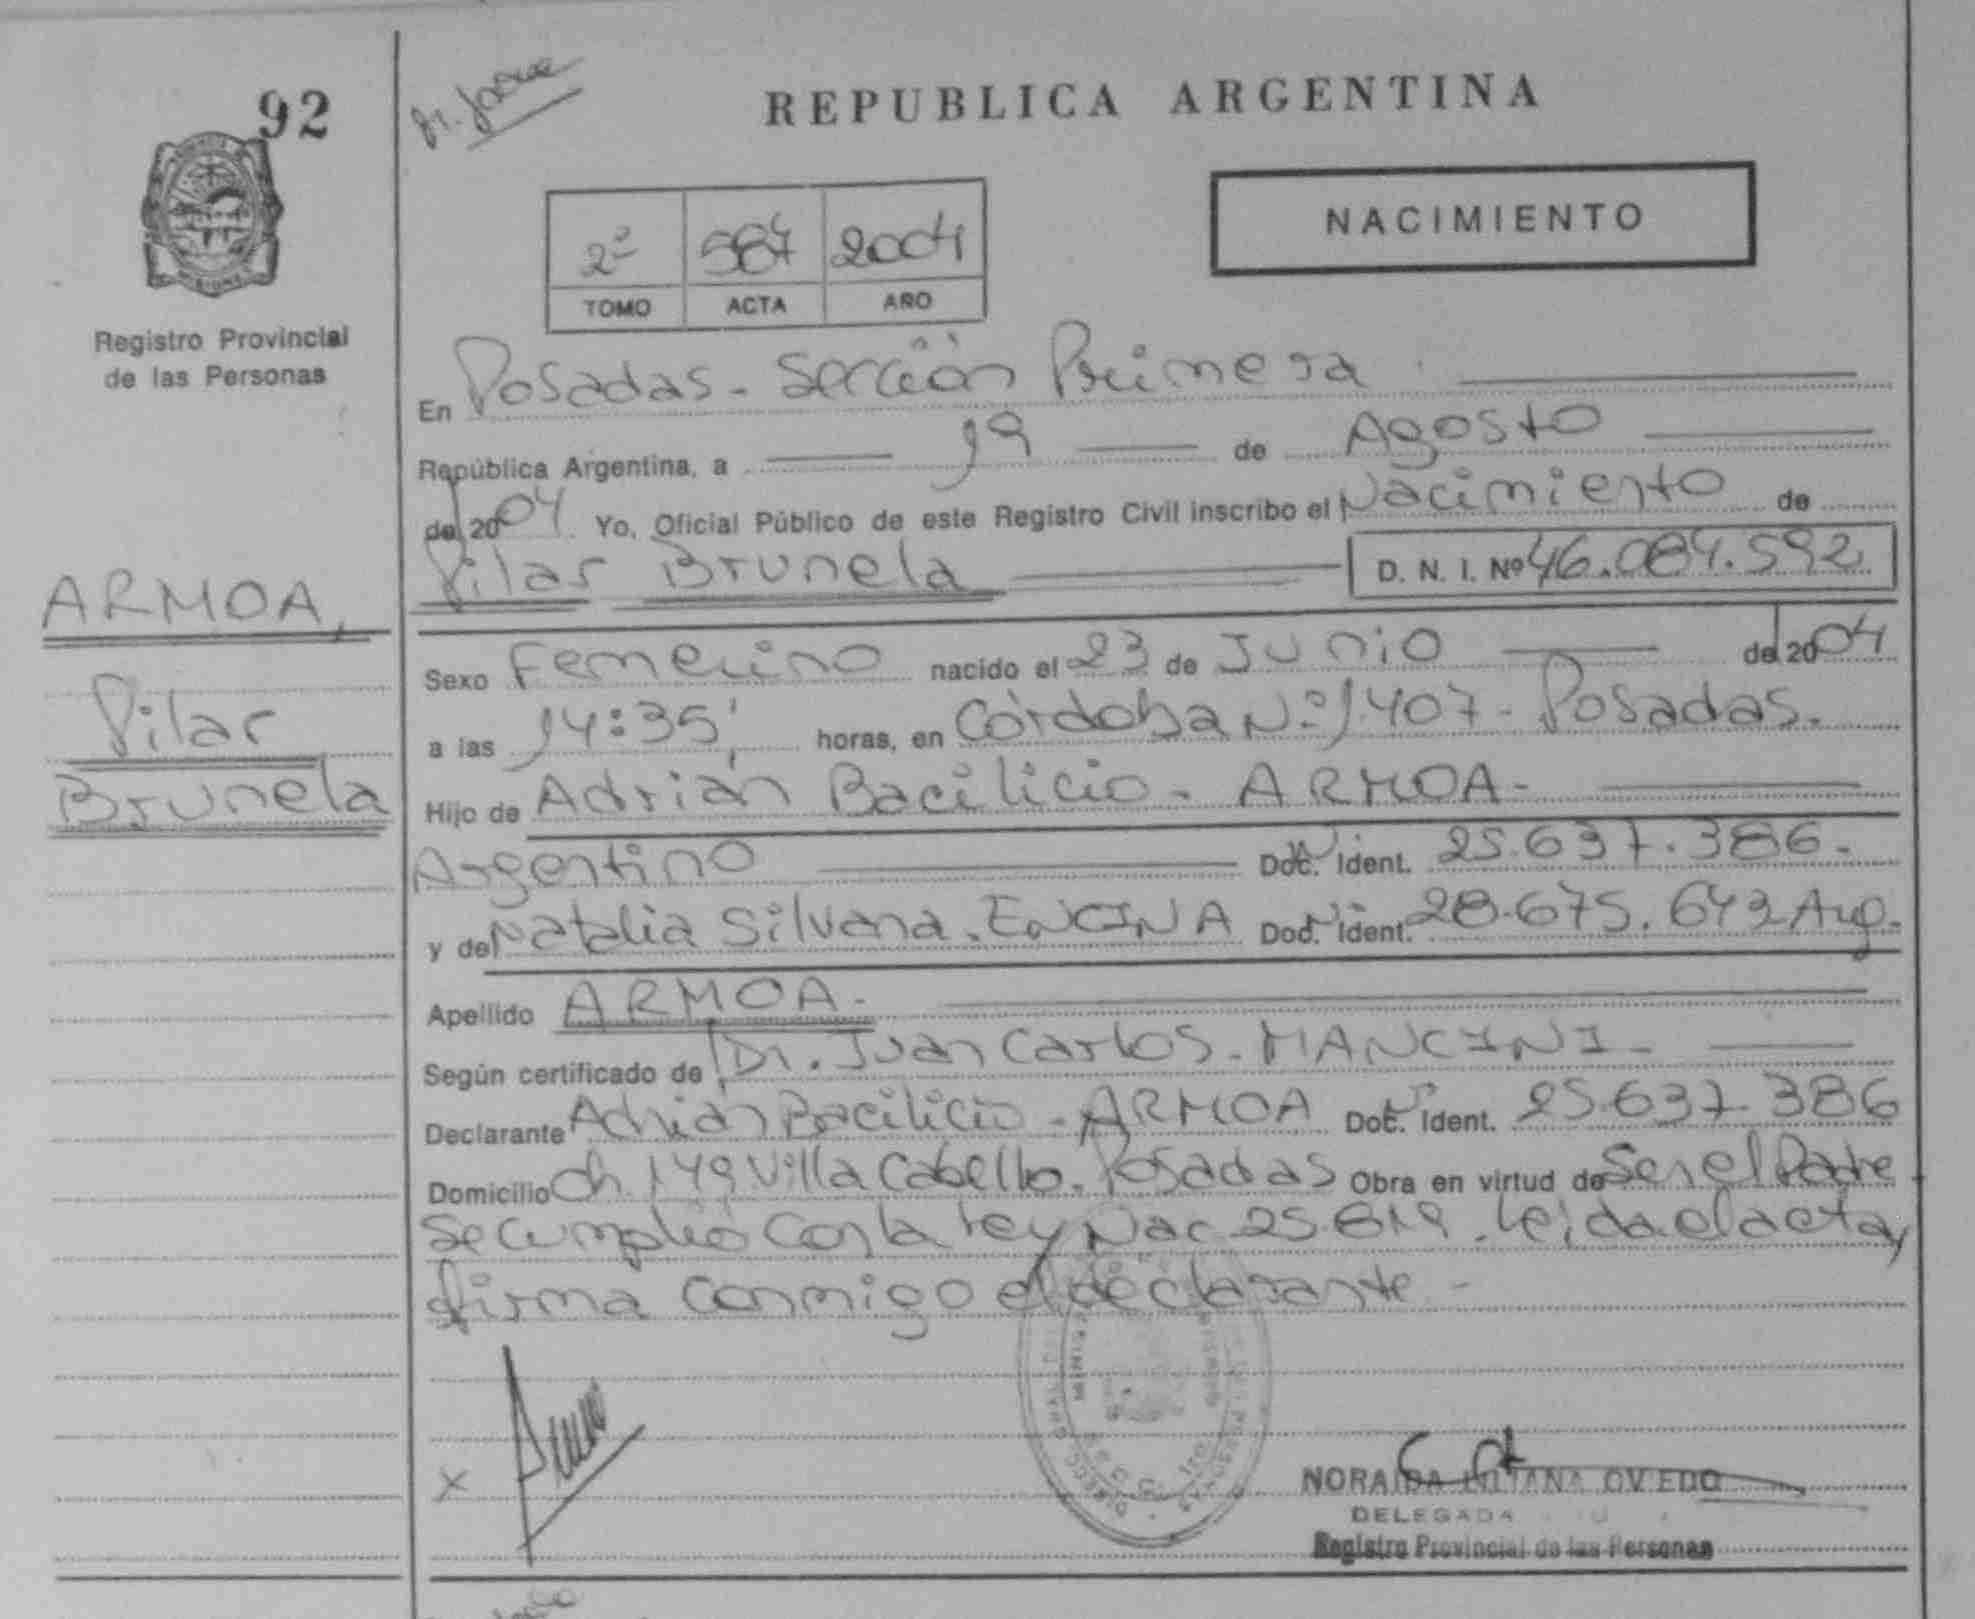 92
REPUBLICA ARGENTINA
NACIMIENTO
2º 587 2004
TOMO ACTA AÑO
Registro Provincial
de las Personas
En Posadas - Sección Primera
República Argentina, a 19 de Agosto
de 2004 Yo, Oficial Público de este Registro Civil inscribo el Nacimiento de
Pilar Brunela D. N. I. Nº 46.084.592
ARMOA,
Pilar
Brunela
Sexo Femenino nacido el 23 de Junio de 2004
a las 14:35' horas, en Córdoba Nº 1.407 - Posadas.
Hijo de Adrián Bacilicio - ARMOA -
Argentino Doc. Ident. 25.637.386.-
y de Natalia Silvana. ENCINA Doc. Ident. 28.675.642 Arg.
Apellido ARMOA -
Según certificado de Dr. Juan Carlos - MANCINI -
Declarante Adrián Bacilicio - ARMOA Doc. Ident. 25.637.386
Domicilio Ch. 149 Villa Cabello. Posadas Obra en virtud de Ser el Padre.
Se cumplió con la ley Nac. 25.819. Leída el acta,
firma conmigo el declarante -
X
NORAIDA LILIANA OVIEDO
DELEGADA
Registro Provincial de las Personas